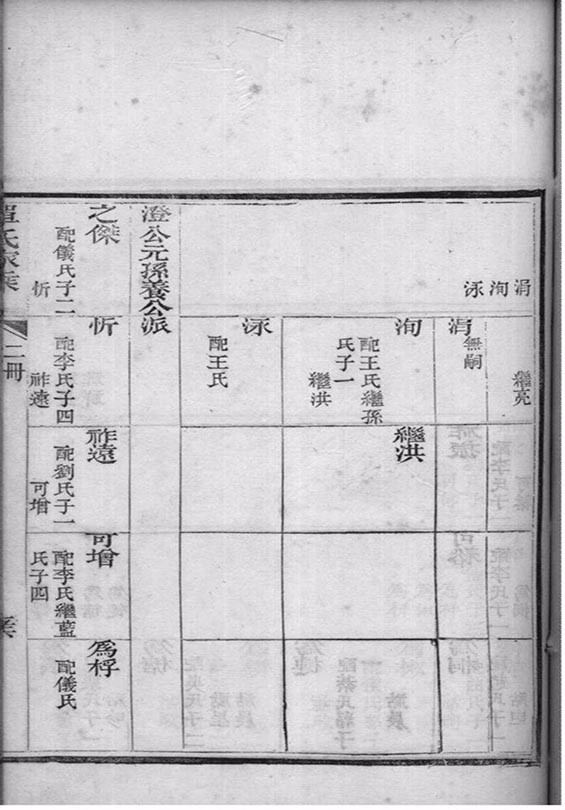 涓
洵
泳
繼亮
涓
無嗣
洵
配王氏繼孫
氏子一
繼洪
繼洪
泳
配王氏
澄公元孫養公派
之傑
配儀氏子二
忻
忻
配李氏子四
祚遠
祚遠
配劉氏子一
可增
可增
配李氏繼藍
氏子四
為桴
配儀氏
二冊